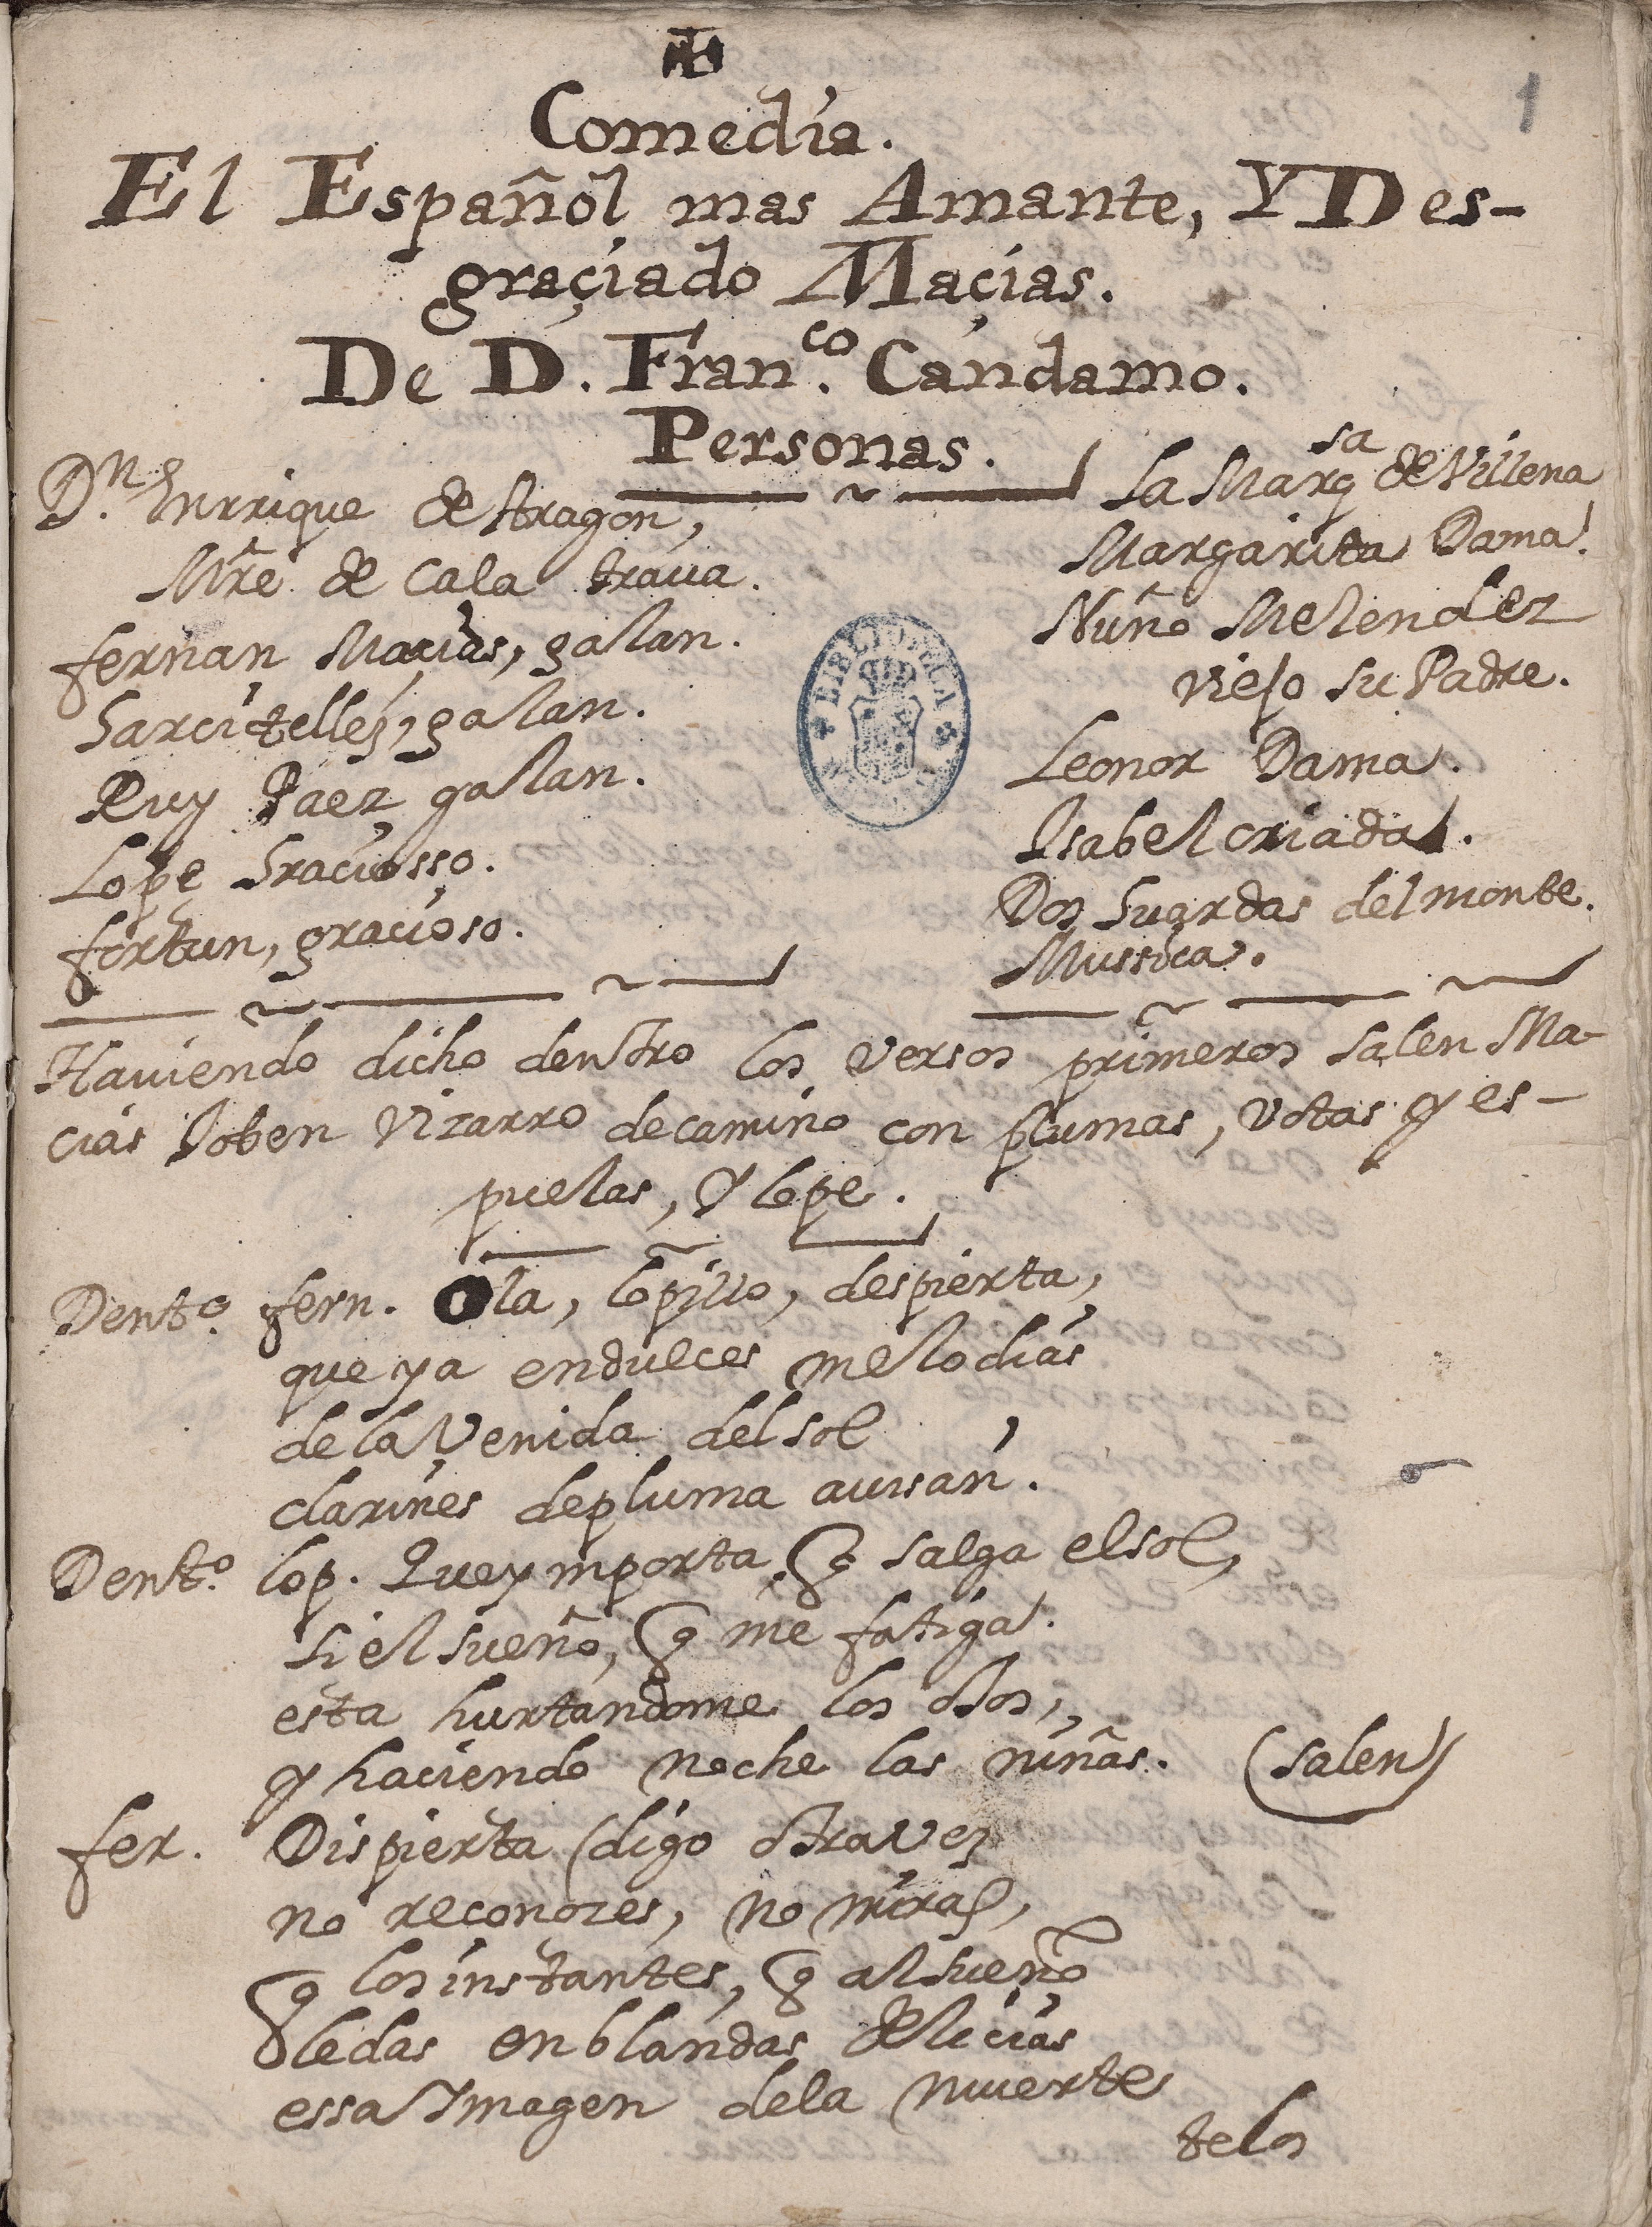 1
Comedia.
El Español mas Amante, Y Des-
graçiado Maçias.
De D. Fran.co Candamo.
Personas.
D.n Enrrique de Aragon,
Mr̃e de Cala traua.
fernan Macias, galan.
Garci tellez, galan.
Ruy Paez galan.
Lope Graciosso.
fortun, gracioso.
La Marq.sa de Villena
Margarita Dama.
Nuño Melendez
viejo su Padre.
Leonor Dama.
Isabel criada.
Dos Guardas del monte.
Mussica.
BIBLIOTECA
Haviendo dicho dentro los versos primeros salen Ma-
cias Joben Vizarro de camino con plumas, votas y es-
puelas, y lope.
Dent.o fern. Ola, lopillo, despierta,
que ya en dulces melodias
de la Venida del sol
clarines de pluma auisan.
Dent.o lop. Que ymporta q̃ salga el sol,
si el sueño, q̃ me fatiga.
esta hurtandome los ojos,
y haciendo noche las niñas. (salen)
fer. Dispierta (digo otra vez
no reconozes, no miras,
q̃ los instantes, q̃ al sueño
le das en blandas delicias
essa Imagen de la muerte
telos